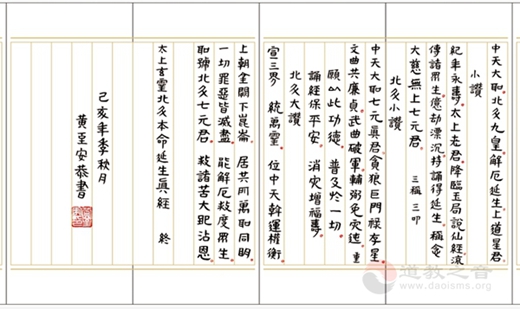 中天大聖北斗九皇 解厄延生上道星君
小讚
紀年永壽 太上老君 降臨玉局說仙經 流
傳諸眾生 億劫漂沉 持誦得延生 稱念
大慈無上七元君 三稱 三叩
北斗小讚
中天大聖七元真君 貪狼巨門祿存星
文曲共廉貞 武曲破軍 輔弼免災迍 重
願以此功德 普及於一切
誦經保平安 消災增福壽
北斗大讚
宣三界 統萬靈 位中天斡運權衡
上朝金闕下崑崙 居其所萬和同
一切罪愆皆滅盡 能解厄救度眾生
聖號北斗七元君 救諸苦大地沾恩
太上玄靈北斗本命延生真經 終
己亥年季秋月
黃至安恭書
道教之音
www.daoisms.org